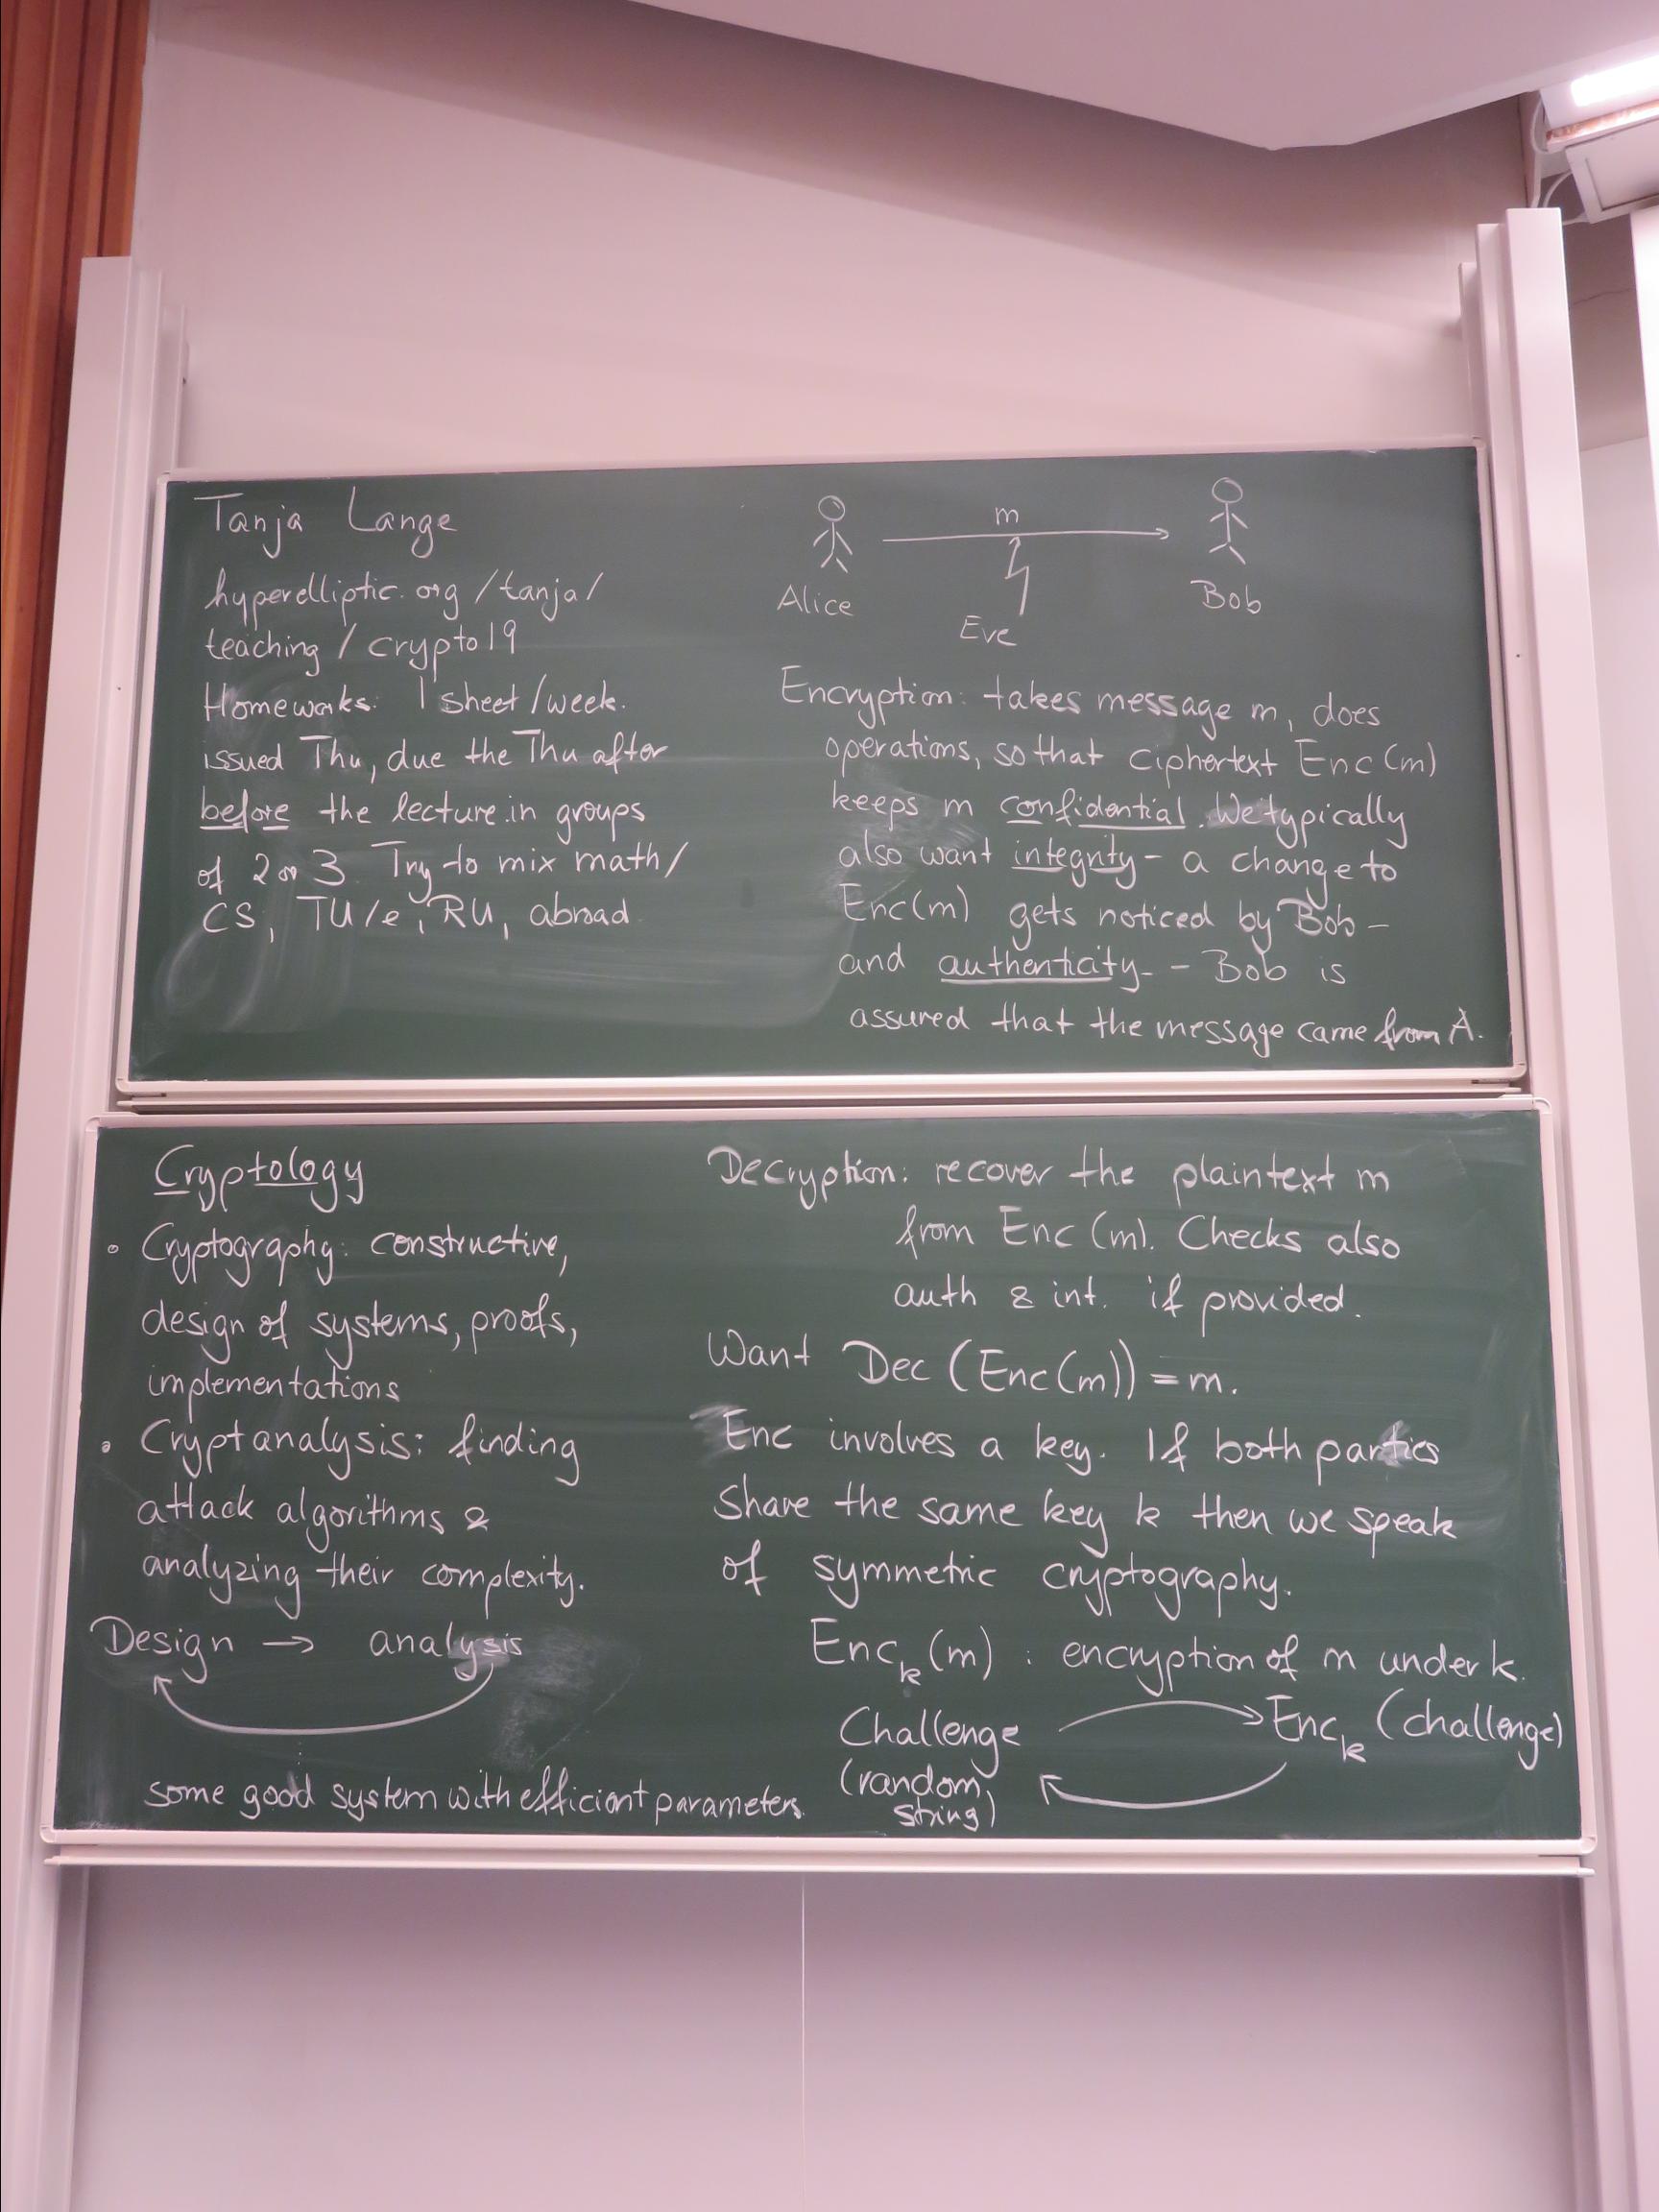 Tanja Lange
hyperelliptic.org/tanja/
teaching/crypto19
Homeworks: 1 sheet/week.
issued Thu, due the Thu after
before the lecture in groups
of 2 or 3. Try to mix math/
CS, TU/e, RU, abroad
m
Alice
Eve
Bob
Encryption: takes message m, does
operations, so that ciphertext Enc(m)
keeps m confidential. We typically
also want integrity - a change to
Enc(m) gets noticed by Bob -
and authenticity - Bob is
assured that the message came from A.
Cryptology
• Cryptography: constructive,
design of systems, proofs,
implementations
• Cryptanalysis: finding
attack algorithms &
analyzing their complexity.
Design → analysis
some good system with efficient parameters.
Decryption: recover the plaintext m
from Enc(m). Checks also
auth & int. if provided.
Want Dec(Enc(m)) = m.
Enc involves a key. If both parties
share the same key k then we speak
of symmetric cryptography.
Enc_k(m) : encryption of m under k.
Challenge → Enc_k(challenge)
(random
string)